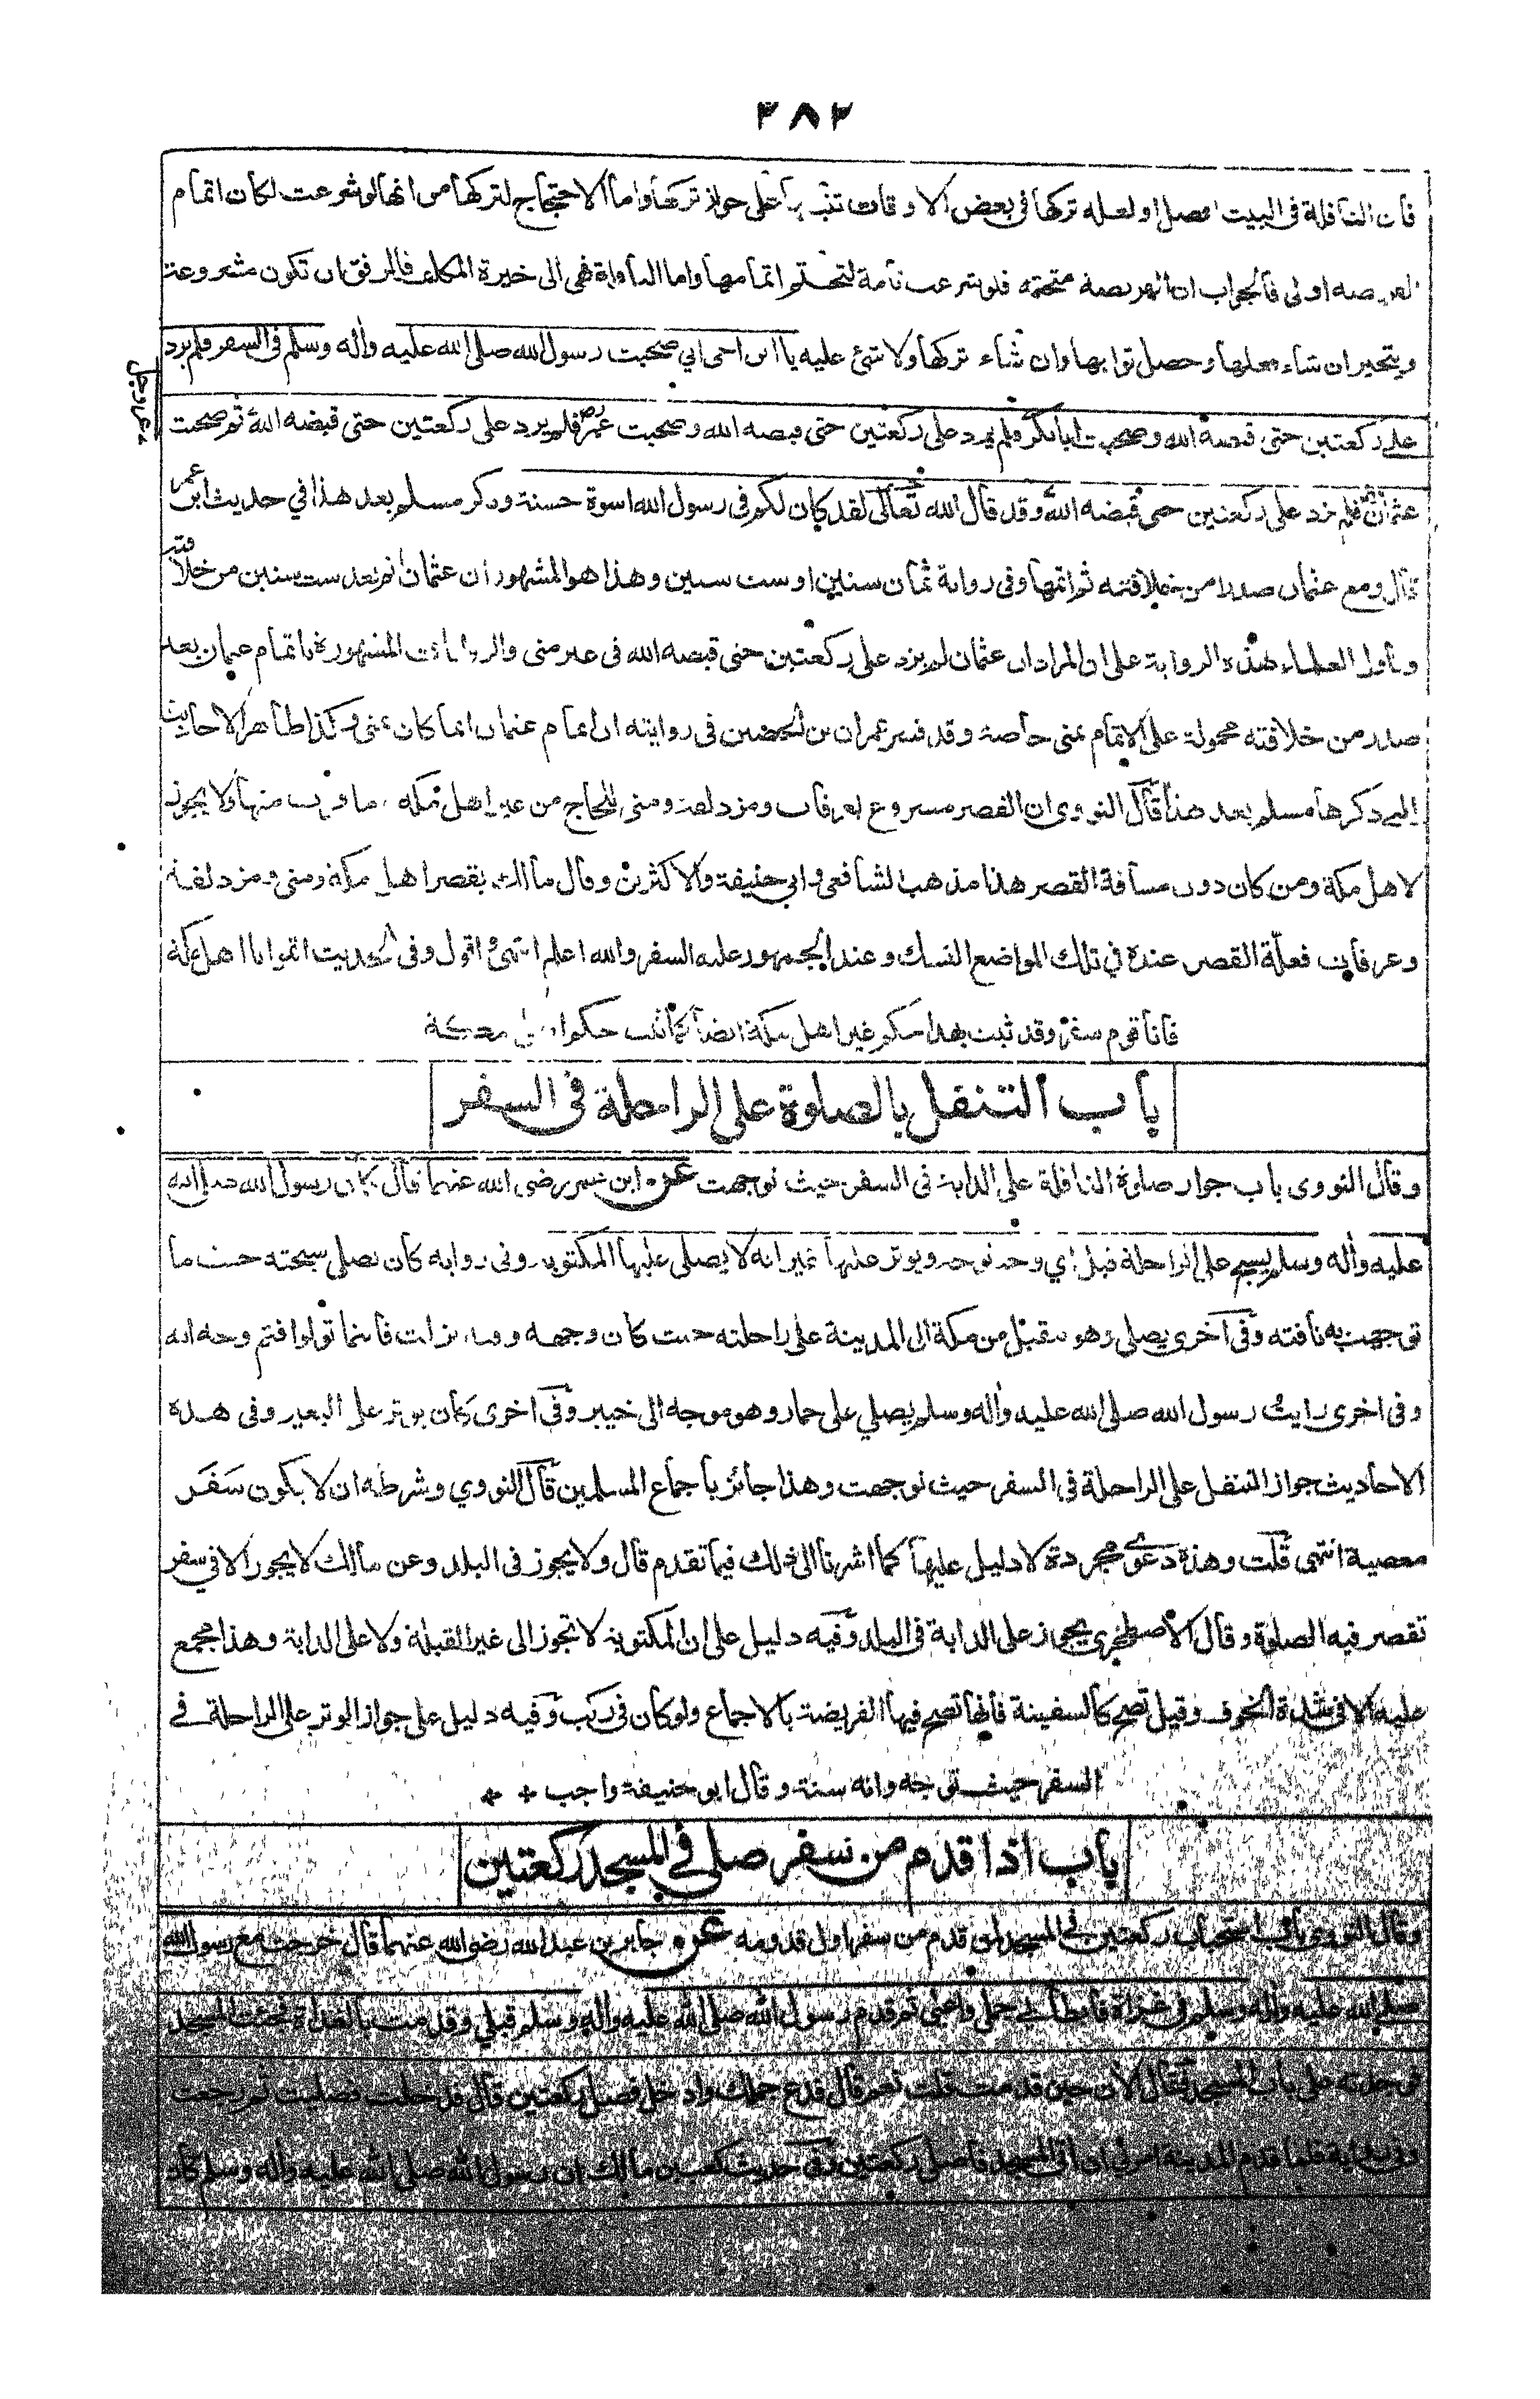 ٣٨٢
فان النافلة فى البيت افضل او لعله تركها فى بعض الاوقات تنبيها على جواز تركها واما الاحتجاج لتركها من انها لو شرعت لكان اتمام
الفريضه اولى فالجواب ان الفريضة متحتمه فلو شرعت تامة لتحتم اتمامها واما النافلة فهى الى خيرة المكلف فالرفق ان تكون مشروعة
ويتخير ان شاء فعلها وحصل ثوابها وان شاء تركها ولا شئ عليه يا ابن اخى انى صحبت رسول الله صلى الله عليه وأله وسلم فى السفر فلم يزد
على ركعتين حتى قبضه الله وصحبت ابا بكر فلم يزد على ركعتين حتى قبضه الله وصحبت عمر فلم يزد على ركعتين حتى قبضه الله ثم صحبت
عز وجل
عثمان فلم يزد على ركعتين حتى قبضه الله وقد قال الله تعالى لقد كان لكم فى رسول الله اسوة حسنة وذكر مسلم بعد هذا في حديث ابن عمر
قال ومع عثمان صدرا من خلافته ثم اتمها وفى رواية ثمان سنين او ست سنين وهذا هو المشهور ان عثمان اتم بعد ست سنين من خلافته
وتاول العلماء هذه الرواية على ان المراد ان عثمان لم يزد على ركعتين حتى قبضه الله فى غير منى والروايات المشهورة باتمام عثمان بعد
صدر من خلافته محمولة على الاتمام بمنى خاصة وقد فسر عمران بن الحصين فى روايته ان اتمام عثمان انما كان بمنى وكذا ظاهر الاحاديث
التى ذكرها مسلم بعد هذا قال النووى ان القصر مشروع بعرفات ومزدلفة ومنى للحاج من غير اهل مكه وما قرب منها ولا يجوز
لاهل مكة ومن كان دون مسافة القصر هذا مذهب الشافعى وابى حنيفة والاكثرين وقال مالك يقصر اهل مكة ومنى ومزدلفة
وعرفات فعلّة القصر عنده فى تلك المواضع النسك وعند الجمهور علته السفر والله اعلم انتهى اقول وفى الحديث اتموا يا اهل مكة
فانا قوم سفر وقد ثبت بهذا حكم غير اهل مكة ايضا كما ثبت حكم اهل مكة
باب التنفل بالصلوة على الراحلة فى السفر
وقال النووى باب جواز صلوة النافلة على الدابة فى السفر حيث توجهت عن ابن عمر رضى الله عنهما قال كان رسول الله صلى الله
عليه وأله وسلم يسبح على الراحلة قبل اي وجه توجه ويوتر عليها غير انه لا يصلى عليها المكتوبه وفى رواية كان يصلى سبحته حيث ما
توجهت به ناقته وفى أخرى يصلى وهو مقبل من مكة الى المدينة على راحلته حيث كان وجهه وفيه نزلت فاينما تولوا فثم وجه الله
وفى اخرى رايت رسول الله صلى الله عليه وأله وسلم يصلي على حمار وهو موجه الى خيبر وفى اخرى كان يوتر على البعير وفى هذه
الاحاديث جواز التنفل على الراحلة فى السفر حيث توجهت وهذا جائز باجماع المسلمين قال النووي وشرطه ان لا يكون سَفَر
معصية انتهى قلت وهذه دعوى مجردة لا دليل عليها كما اشرنا الى ذلك فيما تقدم قال ولا يجوز فى البلد وعن مالك لا يجوز الا في سفر
تقصر فيه الصلوة وقال الاصطخرى يجوز على الدابة فى البلد وفيه دليل على ان المكتوبة لا تجوز الى غير القبلة ولا على الدابة وهذا مجمع
عليه الا فى شدة الخوف وقيل تصح كالسفينة فانها تصح فيها الفريضة بالاجماع ولو كان فى ركب وفيه دليل على جواز الوتر على الراحلة فے
السفر حيث توجه وانه سنة وقال ابو حنيفة واجب + +
باب اذا قدم من سفر صلى في المسجد ركعتين
وقال النووى باب استحباب ركعتين فى المسجد لمن قدم من سفر اول قدومه عن جابر بن عبد الله رضى الله عنهما قال خرجت مع رسول الله
صلى الله عليه وأله وسلم فى غزاة فابطأ بى جملى واعيى ثم قدم رسول الله صلى الله عليه وأله وسلم قبلي وقدمت بالغداة فجئت المسجد
فوجدته على باب المسجد فقال الأن حين قدمت قلت نعم قال فدع جملك وادخل فصل ركعتين قال فدخلت فصليت ثم رجعت
وفى رواية فلما قدم المدينة امرنى ان أتى المسجد فاصلى ركعتين وفى حديث كعب بن مالك ان رسول الله صلى الله عليه وأله وسلم كان